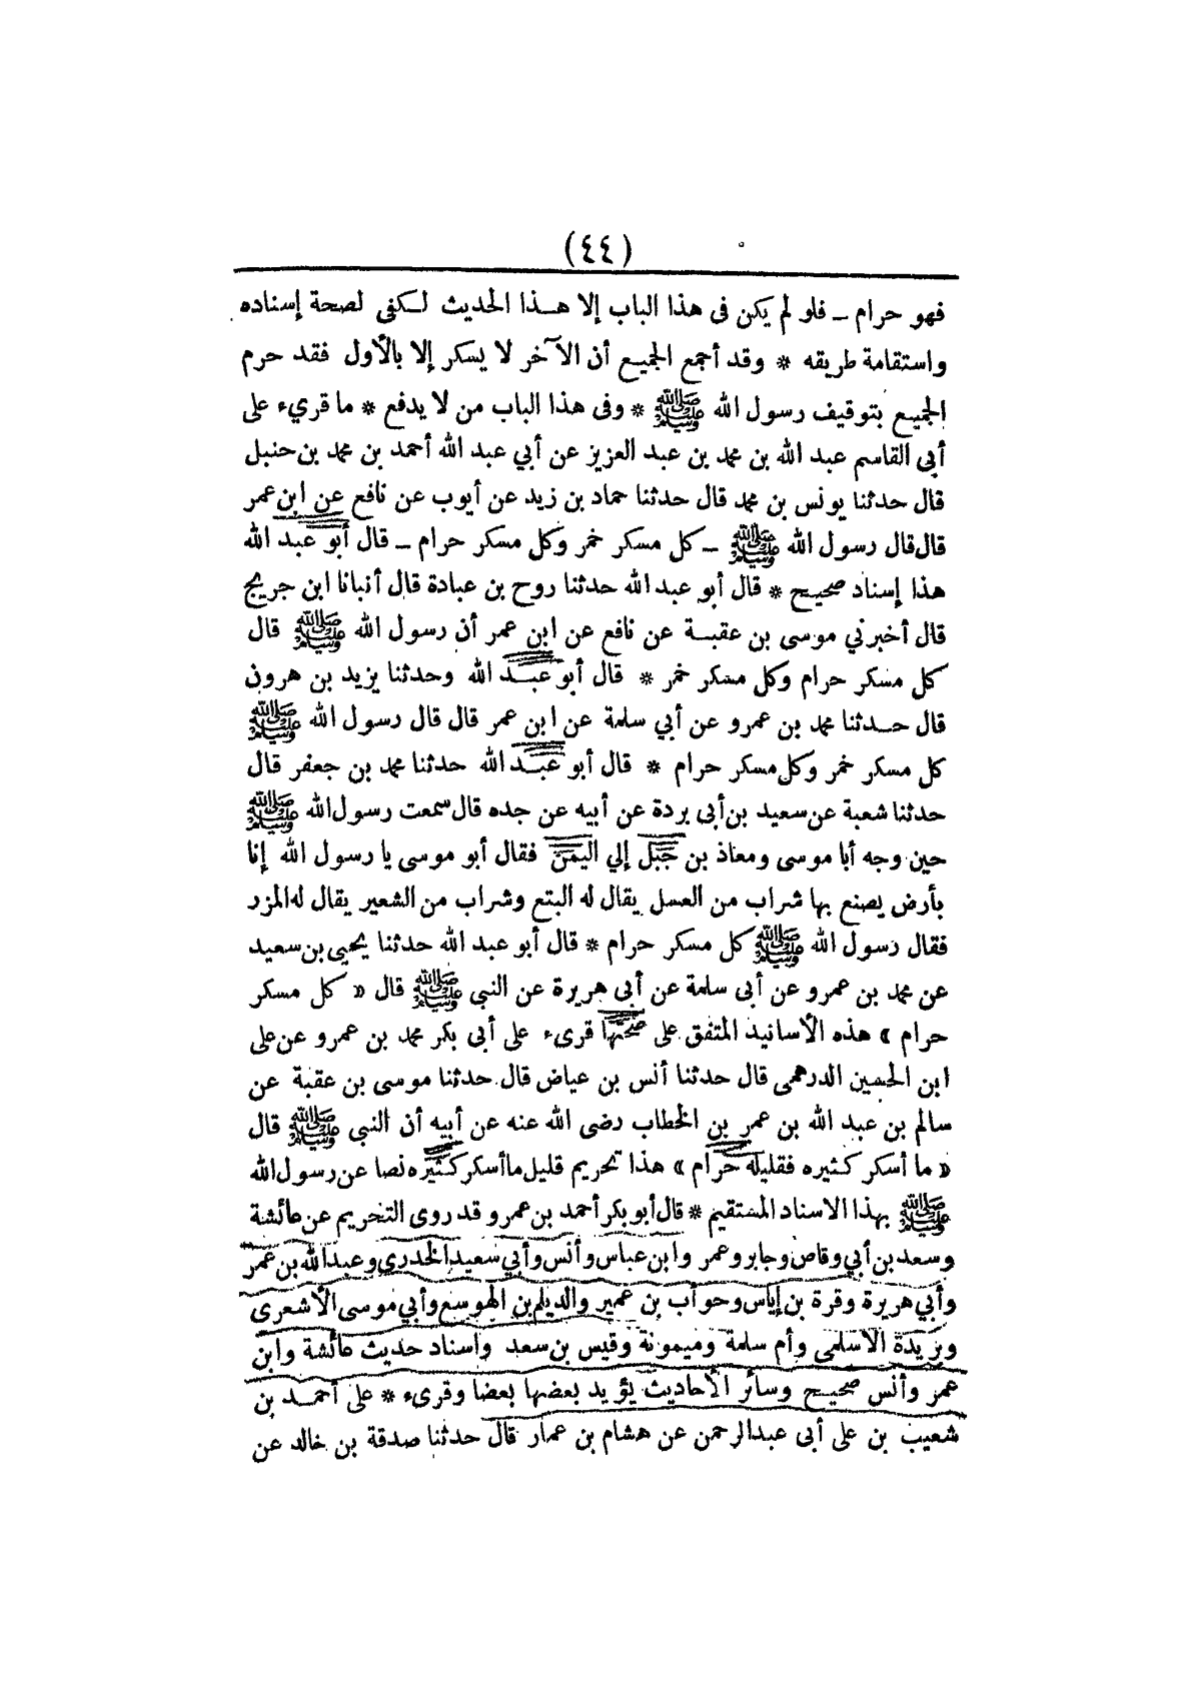 (٤٤)
فهو حرام ـ فلو لم يكن فى هذا الباب إلا هذا الحديث لكفى لصحة إسناده
واستقامة طريقه * وقد أجمع الجميع أن الآخر لا يسكر إلا بالأول فقد حرم
الجميع بتوقيف رسول الله ﷺ * وفى هذا الباب من لا يدفع * ما قريء على
أبى القاسم عبد الله بن محمد بن عبد العزيز عن أبي عبد الله أحمد بن محمد بن حنبل
قال حدثنا يونس بن محمد قال حدثنا حماد بن زيد عن أيوب عن نافع عن ابن عمر
قال قال رسول الله ﷺ ـ كل مسكر خمر وكل مسكر حرام ـ قال أبو عبد الله
هذا إسناد صحيح * قال أبو عبد الله حدثنا روح بن عبادة قال أنبانا ابن جريج
قال أخبرني موسى بن عقبة عن نافع عن ابن عمر أن رسول الله ﷺ قال
كل مسكر حرام وكل مسكر خمر * قال أبو عبد الله وحدثنا يزيد بن هرون
قال حدثنا محمد بن عمرو عن أبي سلمة عن ابن عمر قال قال رسول الله ﷺ
كل مسكر خمر وكل مسكر حرام * قال أبو عبد الله حدثنا محمد بن جعفر قال
حدثنا شعبة عن سعيد بن أبى بردة عن أبيه عن جده قال سمعت رسول الله ﷺ
حين وجه أبا موسى ومعاذ بن جبل إلي اليمن فقال أبو موسى يا رسول الله إنا
بأرض يصنع بها شراب من العسل يقال له البتع وشراب من الشعير يقال له المزر
فقال رسول الله ﷺ كل مسكر حرام * قال أبو عبد الله حدثنا يحيى بن سعيد
عن محمد بن عمرو عن أبى سلمة عن أبى هريرة عن النبي ﷺ قال « كل مسكر
حرام » هذه الأسانيد المتفق على صحتها قرىء على أبى بكر محمد بن عمرو عن على
ابن الحسين الدرهمى قال حدثنا أنس بن عياض قال حدثنا موسى بن عقبة عن
سالم بن عبد الله بن عمر بن الخطاب رضى الله عنه عن أبيه أن النبي ﷺ قال
« ما أسكر كثيره فقليله حرام » هذا تحريم قليل ما أسكر كثيره نصا عن رسول الله
ﷺ بهذا الاسناد المستقيم * قال أبو بكر أحمد بن عمرو قد روى التحريم عن عائشة
وسعد بن أبي وقاص وجابر وعمر وابن عباس وأنس وأبي سعيد الخدرى وعبد الله بن عمر
وأبي هريرة وقرة بن إياس وحوأب بن عمير والديلم بن الهوسع وأبي موسى الأشعرى
وبريدة الاسلمى وأم سلمة وميمونة وقيس بن سعد واسناد حديث عائشة وابن
عمر وأنس صحيح وسائر الأحاديث يؤيد بعضها بعضا وقرىء * على أحمد بن
شعيب بن على أبى عبد الرحمن عن هشام بن عمار قال حدثنا صدقة بن خالد عن